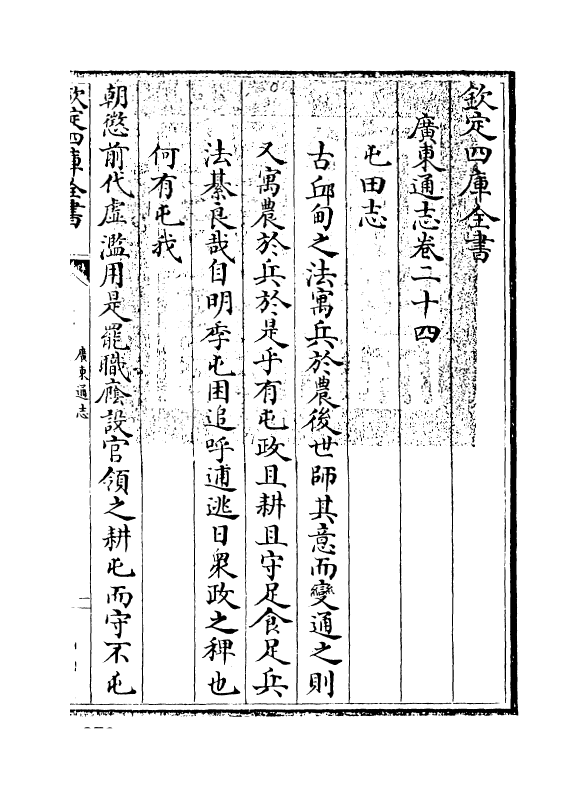 欽定四庫全書
廣東通志卷二十四
屯田志
古邱甸之法寓兵於農後世師其意而變通之則
又寓農於兵於是乎有屯政且耕且守足食足兵
法綦良哉自明季屯困追呼逋逃日衆政之稗也
何有屯我
朝懲前代虛濫用是罷職廕設官領之耕屯而守不屯
欽定四庫全書
廣東通志